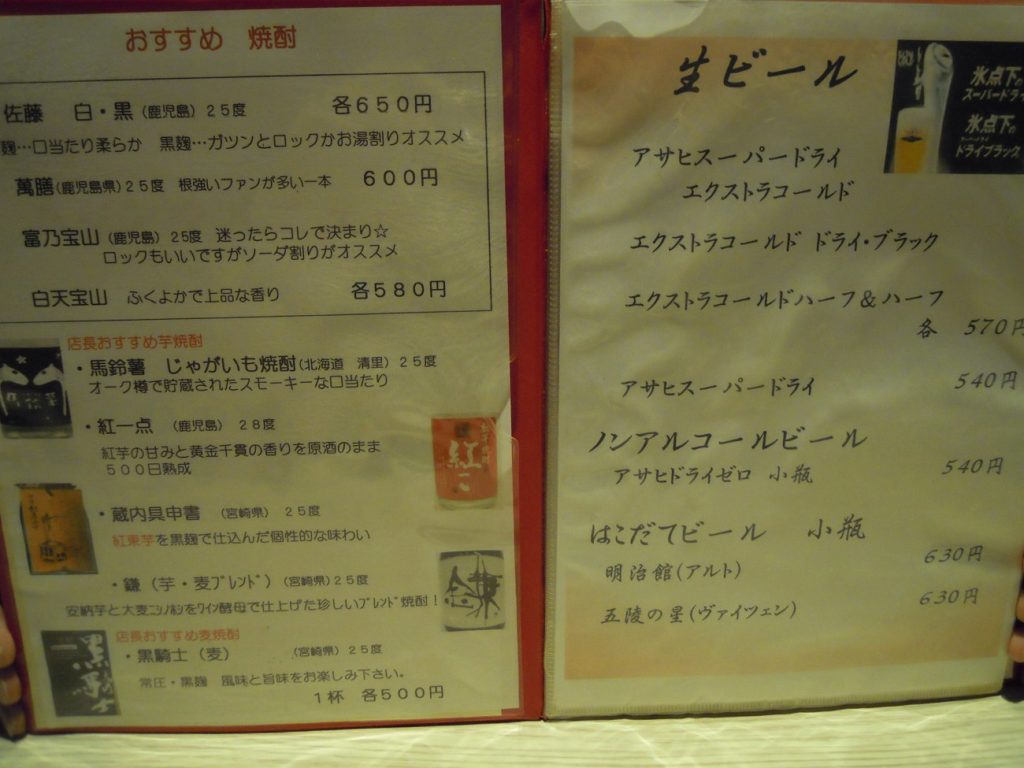 おすすめ 焼酎
佐藤 白・黒(鹿児島)25度 各650円
麹…口当たり柔らか 黒麹…ガツンとロックかお湯割りオススメ
萬膳(鹿児島県)25度 根強いファンが多い一本 600円
富乃宝山(鹿児島)25度 迷ったらコレで決まり☆
ロックもいいですがソーダ割りがオススメ
白天宝山 ふくよかで上品な香り 各580円
店長おすすめ芋焼酎
・馬鈴薯 じゃがいも焼酎(北海道 清里)25度
オーク樽で貯蔵されたスモーキーな口当たり
・紅一点 (鹿児島) 28度
紅芋の甘みと黄金千貫の香りを原酒のまま
500日熟成
・蔵内具申書 (宮崎県) 25度
紅東芋を黒麹で仕込んだ個性的な味わい
・鎌(芋・麦ブレンド)(宮崎県)25度
安納芋と大麦ニシノホシをワイン酵母で仕上げた珍しいブレンド焼酎!
店長おすすめ麦焼酎
・黒騎士(麦) (宮崎県)25度
常圧・黒麹 風味と旨味をお楽しみ下さい。
1杯 各500円
生ビール
氷点下の
スーパードラ
氷点下の
ドライブラック
アサヒスーパードライ
エクストラコールド
エクストラコールド ドライ・ブラック
エクストラコールドハーフ&ハーフ
各 570円
アサヒスーパードライ 540円
ノンアルコールビール
アサヒドライゼロ 小瓶 540円
はこだてビール 小瓶
明治館(アルト) 630円
五稜の星(ヴァイツェン) 630円